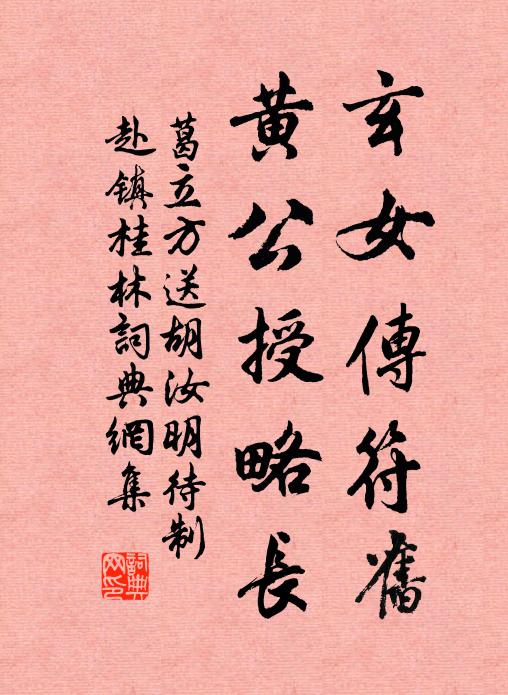 玄女傳符舊
黃公授略長
葛立方送胡汝明待制
赴镇桂林詞典網集
詞典网印